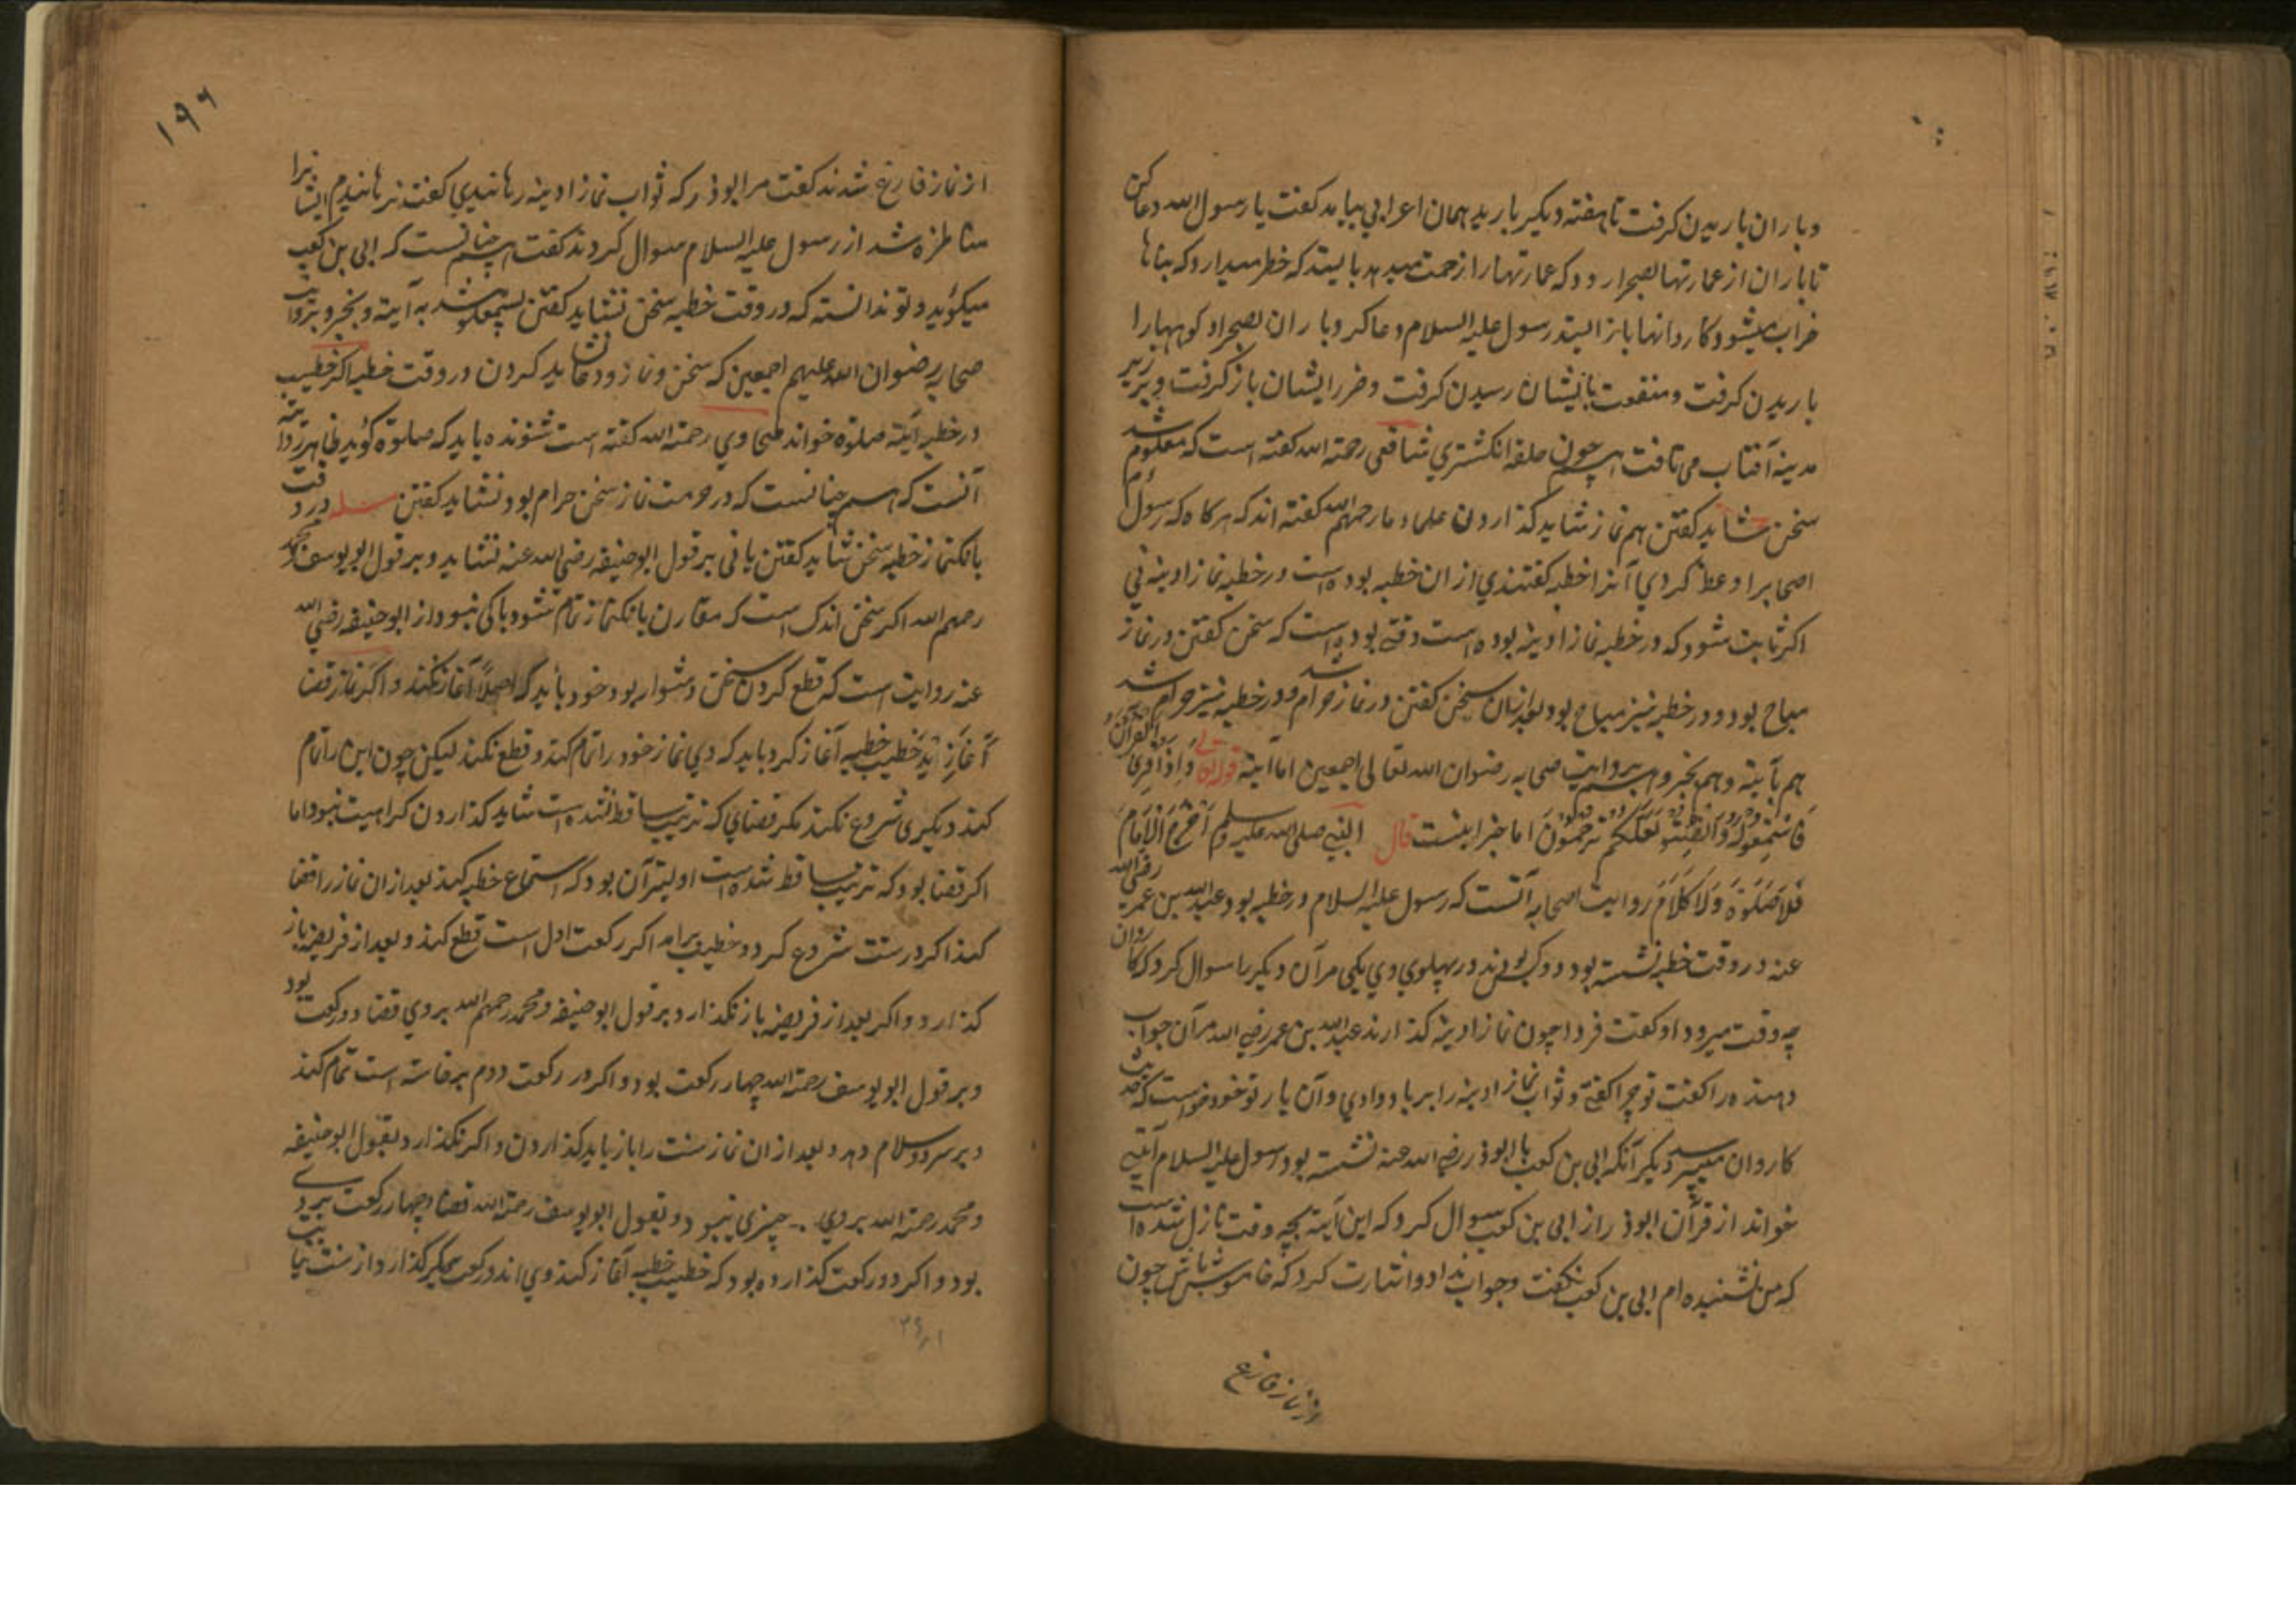 وباران باریدن کرفت تا هفته دیکر بارید همان اعرابی بیاید کفت یا رسول الله دعا کن
تا باران از عمارتها بصحرا رود که عمارتها را زحمت میدهد با یستد که خطر میدارد که بناها
خراب میشود وکاروانها باز ایستد رسول علیه السلام دعا کرد وباران بصحرا وکوهها را
باریدن کرفت ومنفعت بایشان رسیدن کرفت وضرر ایشان باز کرفت وبر زیر
مدینه آفتاب می تافت همچون حلقه انکشتری شافعی رحمة الله کفته است که معلوم شد
سخن شاید کفتن هم نماز شاید کذاردن علماء ما رحمهم الله کفته اند که هرکاه که رسول
اصحابرا وعظ کردی آنرا خطبه کفتندی از ان خطبه بوده است در خطبه نماز ادینه نی
اکر ثابت شود که در خطبه نماز ادینه بوده است وقتی بوده است که سخن کفتن در نماز
مباح بود ودر خطبه نیز مباح بود بعد ازان سخن کفتن در نماز حرام شد ودر خطبه نیز حرام شد
هم بآیته وهم بخبر وهم بروایت صحابه رضوان الله تعالی اجمعین اما آیته قوله تعالی وَاِذَا قُرِئَ الْقُرْآنُ
فَاسْتَمِعُوا لَهُ وَاَنْصِتُوا لَعَلَّكُمْ تُرْحَمُونَ اما خبر اینست قال النبی صلی الله علیه وسلم اِذَا خَرَجَ الْاِمَامُ
فَلَا صَلٰوةَ وَلَا كَلَامَ روایت اصحابه آنست که رسول علیه السلام در خطبه بود عبد الله بن عمر رضی الله
عنه در وقت خطبه نشسته بود دو کس بودند در پهلوی وی یکی مرآن دیکر را سوال کرد که کاروان
چه وقت میرود او کفت فردا چون نماز ادینه کذارند عبد الله بن عمر رضی الله مرآن جواب
دهنده را کفت تو چرا کفتی وثواب نماز ادینه را بر باد دادی وآن یار تو خود خواست که حدیث
کاروان میپرسد دیکر آنکه ابی بن کعب با ابوذر رضی الله عنه نشسته بود رسول علیه السلام آیتی
خواند از قرآن ابوذر از ابی بن کعب سوال کرد که این آیته بچه وقت نازل شده است
که من نشنیده ام ابی بن کعب نکفت وجواب نداد واشارت کرد که خاموش باش چون
از نماز فارغ
۱۹۶
از نماز فارغ شدند کفت مر ابوذر که ثواب نماز ادینه رهانیدی کفت نرهانیدم ایشانرا
مناظره شد از رسول علیه السلام سوال کردند کفت همچنانست که ابی بن کعب
میکوید وتو ندانسته که در وقت خطبه سخن نشاید کفتن پس معلوم شد به آیته وبخبر وبروایت
صحابه رضوان الله علیهم اجمعین که سخن ونماز ودعا نشاید کردن در وقت خطبه اکر خطیب
در خطبه آیته صلوة خواند طحاوی رحمة الله کفته است شنونده باید که صلوة کوید ظاهر روایته
آنست که همچنانست که در حرمت نماز سخن حرام بود نشاید کفتن مسله در وقت
بانکنماز خطبه سخن شاید کفتن یا نی بر قول ابو حنیفه رضی الله عنه نشاید وبر قول ابو یوسف ومحمد
رحمهم الله اکر سخن اندک است که مقارن بانکنماز تمام شود باکی نبود واز ابو حنیفه رضی الله
عنه روایت است که قطع کردن سخن دشوار بود خود باید که اصلاً آغاز نکند واکر نماز قضا
آغازید خطیب خطبه آغاز کرد باید که وی نماز خود را تمام کند وقطع نکند لیکن چون این را تمام
کند دیکری شروع نکند مکر قضای که ترتیب ساقط نشده است شاید کذاردن کراهیت نبود اما
اکر قضا بود که ترتیب ساقط شده است اولیتر آن بود که استماع خطبه کند بعد از ان نماز را قضا
کند اکر در سنت شروع کرد وخطیب برامد اکر رکعت اول است قطع کند وبعد از فریضه باز
کذارد واکر بعد از فریضه باز نکذارد بر قول ابو حنیفه ومحمد رحمهم الله بروی قضا دو رکعت بود
وبر قول ابو یوسف رحمة الله چهار رکعت بود واکر در رکعت دوم برخاسته است تمام کند
وبر سر دو سلام دهد وبعد از ان نماز سنت را باز باید کذاردن واکر نکذارد بقول ابو حنیفه
ومحمد رحمة الله بروی چیزی نبود وبقول ابو یوسف رحمة الله قضاء چهار رکعت بروی
بود واکر دو رکعت کذارده بود که خطیب خطبه آغاز کند وی اندر رکعت سیکر کذارد از سنت نیابت